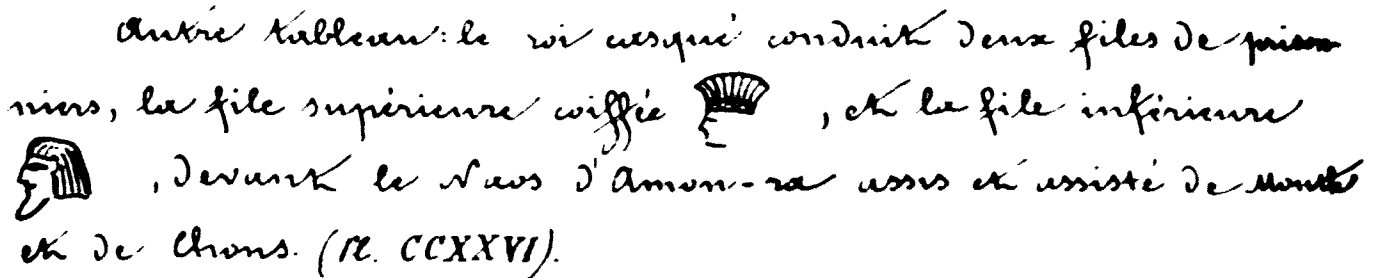 Autre tableau: le roi casqué conduit deux files de prison
niers, la file supérieure coiffée , et la file inférieure
, devant le Naos d'Amon-ra assis et assisté de Mouth
et de Chons. (Pl. CCXXVI).